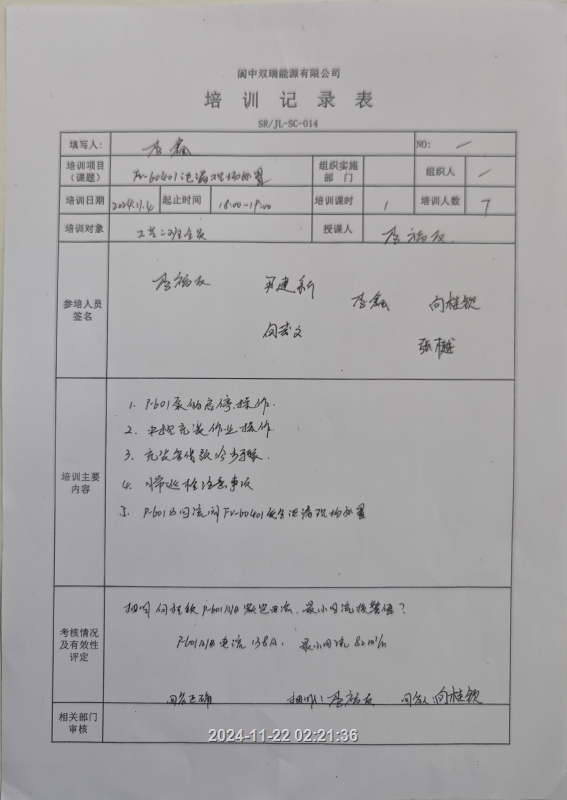 阆中双瑞能源有限公司
培 训 记 录 表
SR/JL-SC-014
填写人: 李鑫 NO: /
培训项目（课题） FV-60401泄漏现场处置 组织实施部 门 组织人 /
培训日期 2024.11.4 起止时间 18:00-19:00 培训课时 1 培训人数 7
培训对象 工艺二班全员 授课人 李福友
参培人员签名
李福友 建新 李鑫 向桂钦
向武文 张越
培训主要内容
1. P-601泵的启停操作.
2. 充装作业操作
3. 充装步骤.
4. 日常巡检注意事项
5. P-601出口回流阀FV-60401发生泄漏现场处置
考核情况及有效性评定
抽问向桂钦P-601A/B额定电流、最小回流报警值?
P-601A/B电流138A, 最小回流82m³/h
回答正确 抽问人: 李福友 回答人 向桂钦
相关部门审核
2024-11-22 02:21:36